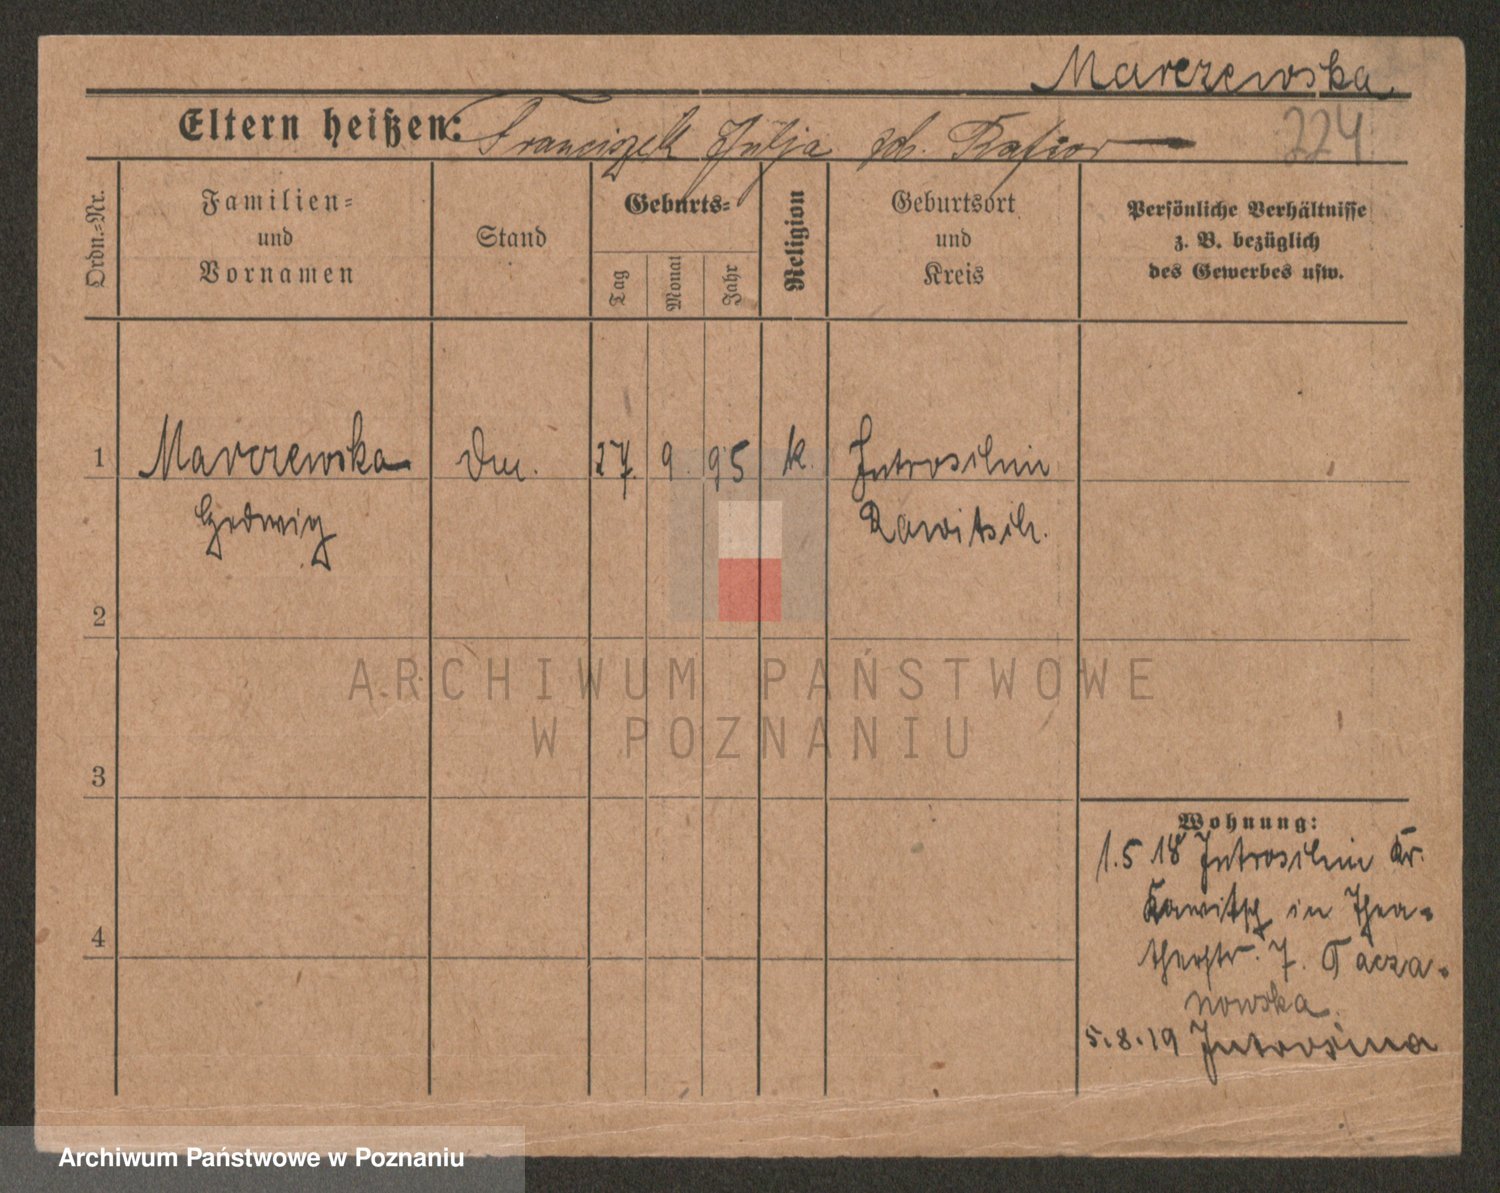 Marczewska
Eltern heißen: Franciszek Julja geb. Kasior
224
Ordn.-Nr.
Familien-
und
Vornamen
Stand
Geburts-
Tag
Monat
Jahr
Religion
Geburtsort
und
Kreis
Persönliche Verhältnisse
z. B. bezüglich
des Gewerbes usw.
1 Marczewska 27. 9. 95 k. Jutroschin
Hedwig Rawitsch.
2
3
4
ARCHIWUM PAŃSTWOWE
W POZNANIU
Wohnung:
1.5 18 Jutroschin Kr.
Rawitsch in Thea-
therstr. 7. Tacza-
nowska.
5.8.19 Jutrosina
Archiwum Państwowe w Poznaniu